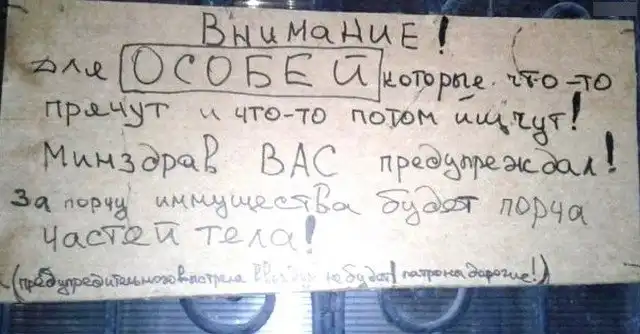 Внимание!
для ОСОБЕЙ которые что-то
прячут и что-то потом ищчут!
Минздрав ВАС предупреждал!
За порчу иммущества будет порча
частей тела!
(предупредительного выстрела не будет! патроны дорогие!)